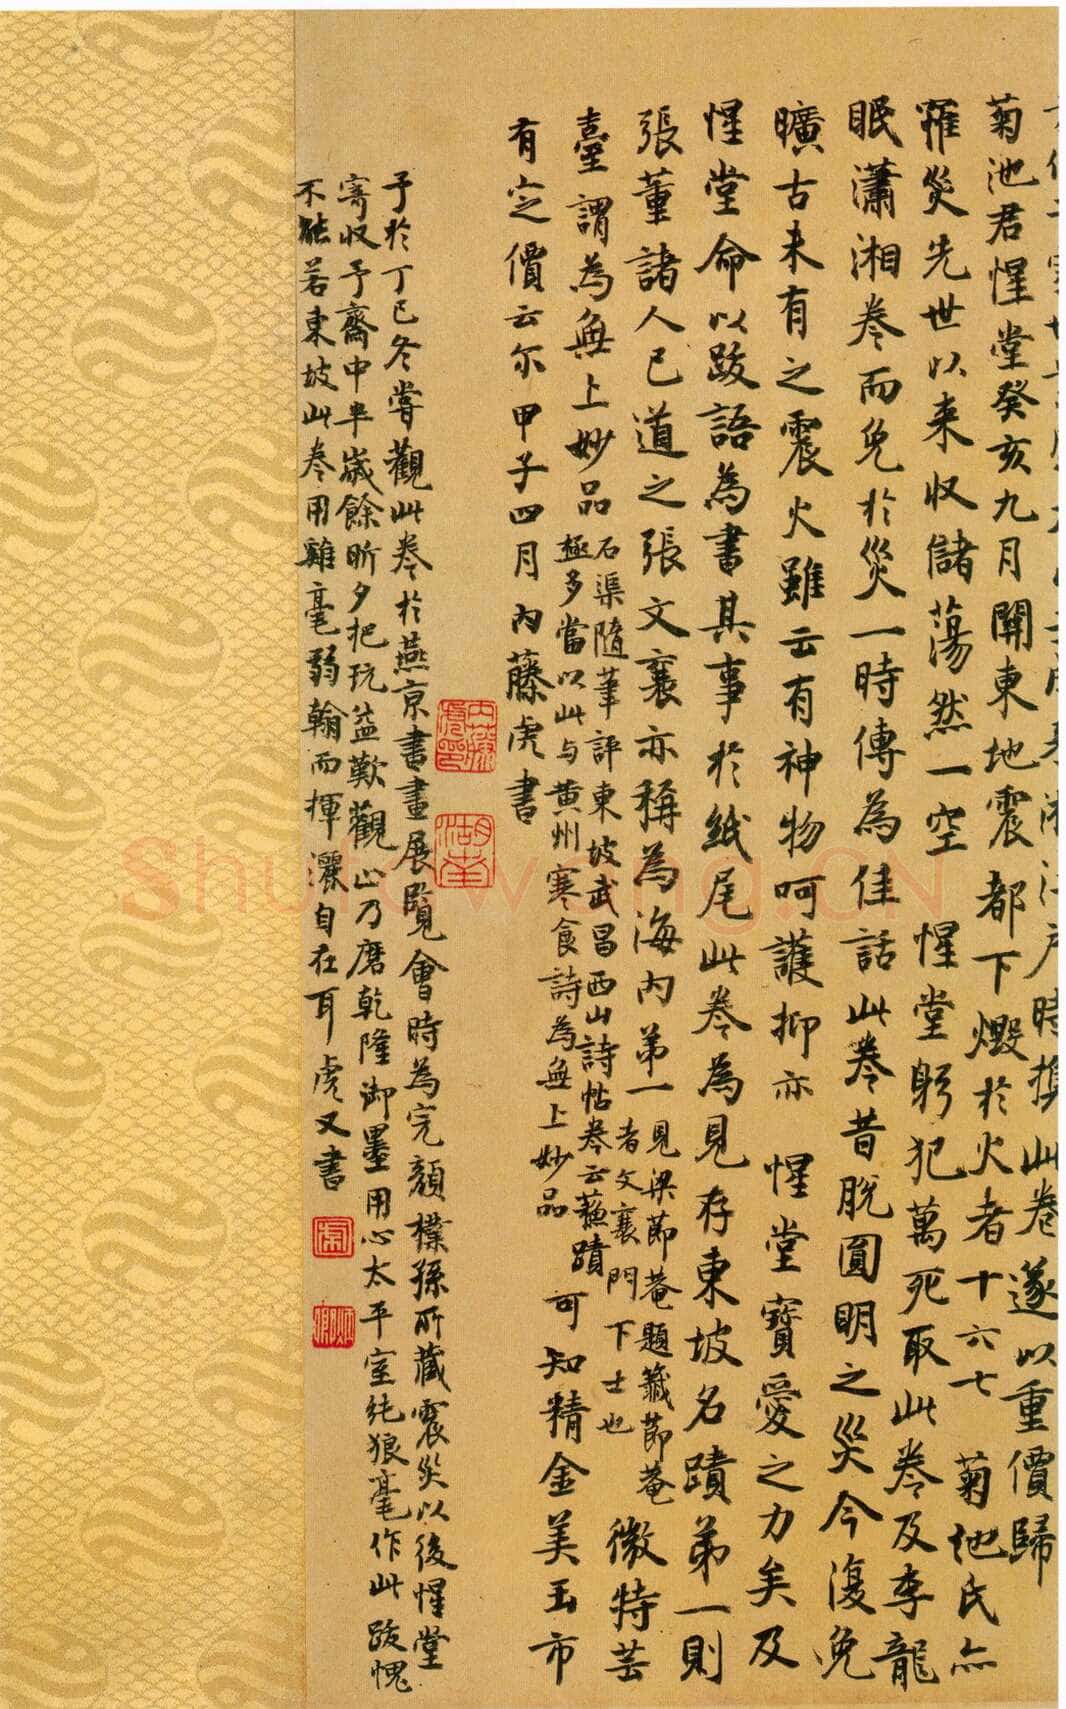 時携此卷遂以重價歸
菊池君惺堂癸亥九月關東地震都下燬於火者十六七 菊池氏亦
罹災先世以来收儲蕩然一空 惺堂躬犯萬死取此卷及李龍
眠瀟湘卷而免於災一時傳為佳話此卷昔脫圓明之災今復免
曠古未有之震火雖云有神物呵護抑亦 惺堂寶愛之力矣及
惺堂命以跋語為書其事於紙尾此卷為見存東坡名蹟第一則
張董諸人已道之張文襄亦稱為海內第一
見梁節菴題籤節菴
者文襄門下士也
微特芸
臺謂為無上妙品
石渠隨筆評東坡武昌西山詩帖卷云蘇蹟
極多當以此与黄州寒食詩為無上妙品
可知精金美玉市
有定價云尔甲子四月內藤虎書
內藤虎印
湖南
予於丁巳冬嘗觀此卷於燕京書畫展覽會時為完顏樸孫所藏震災以後惺堂
寄收予齋中半歲餘昕夕把玩益歎觀止乃磨乾隆御墨用心太平室純狼毫作此跋愧
不能若東坡此卷用雞毫弱翰而揮灑自在耳虎又書
Shufawang.CN